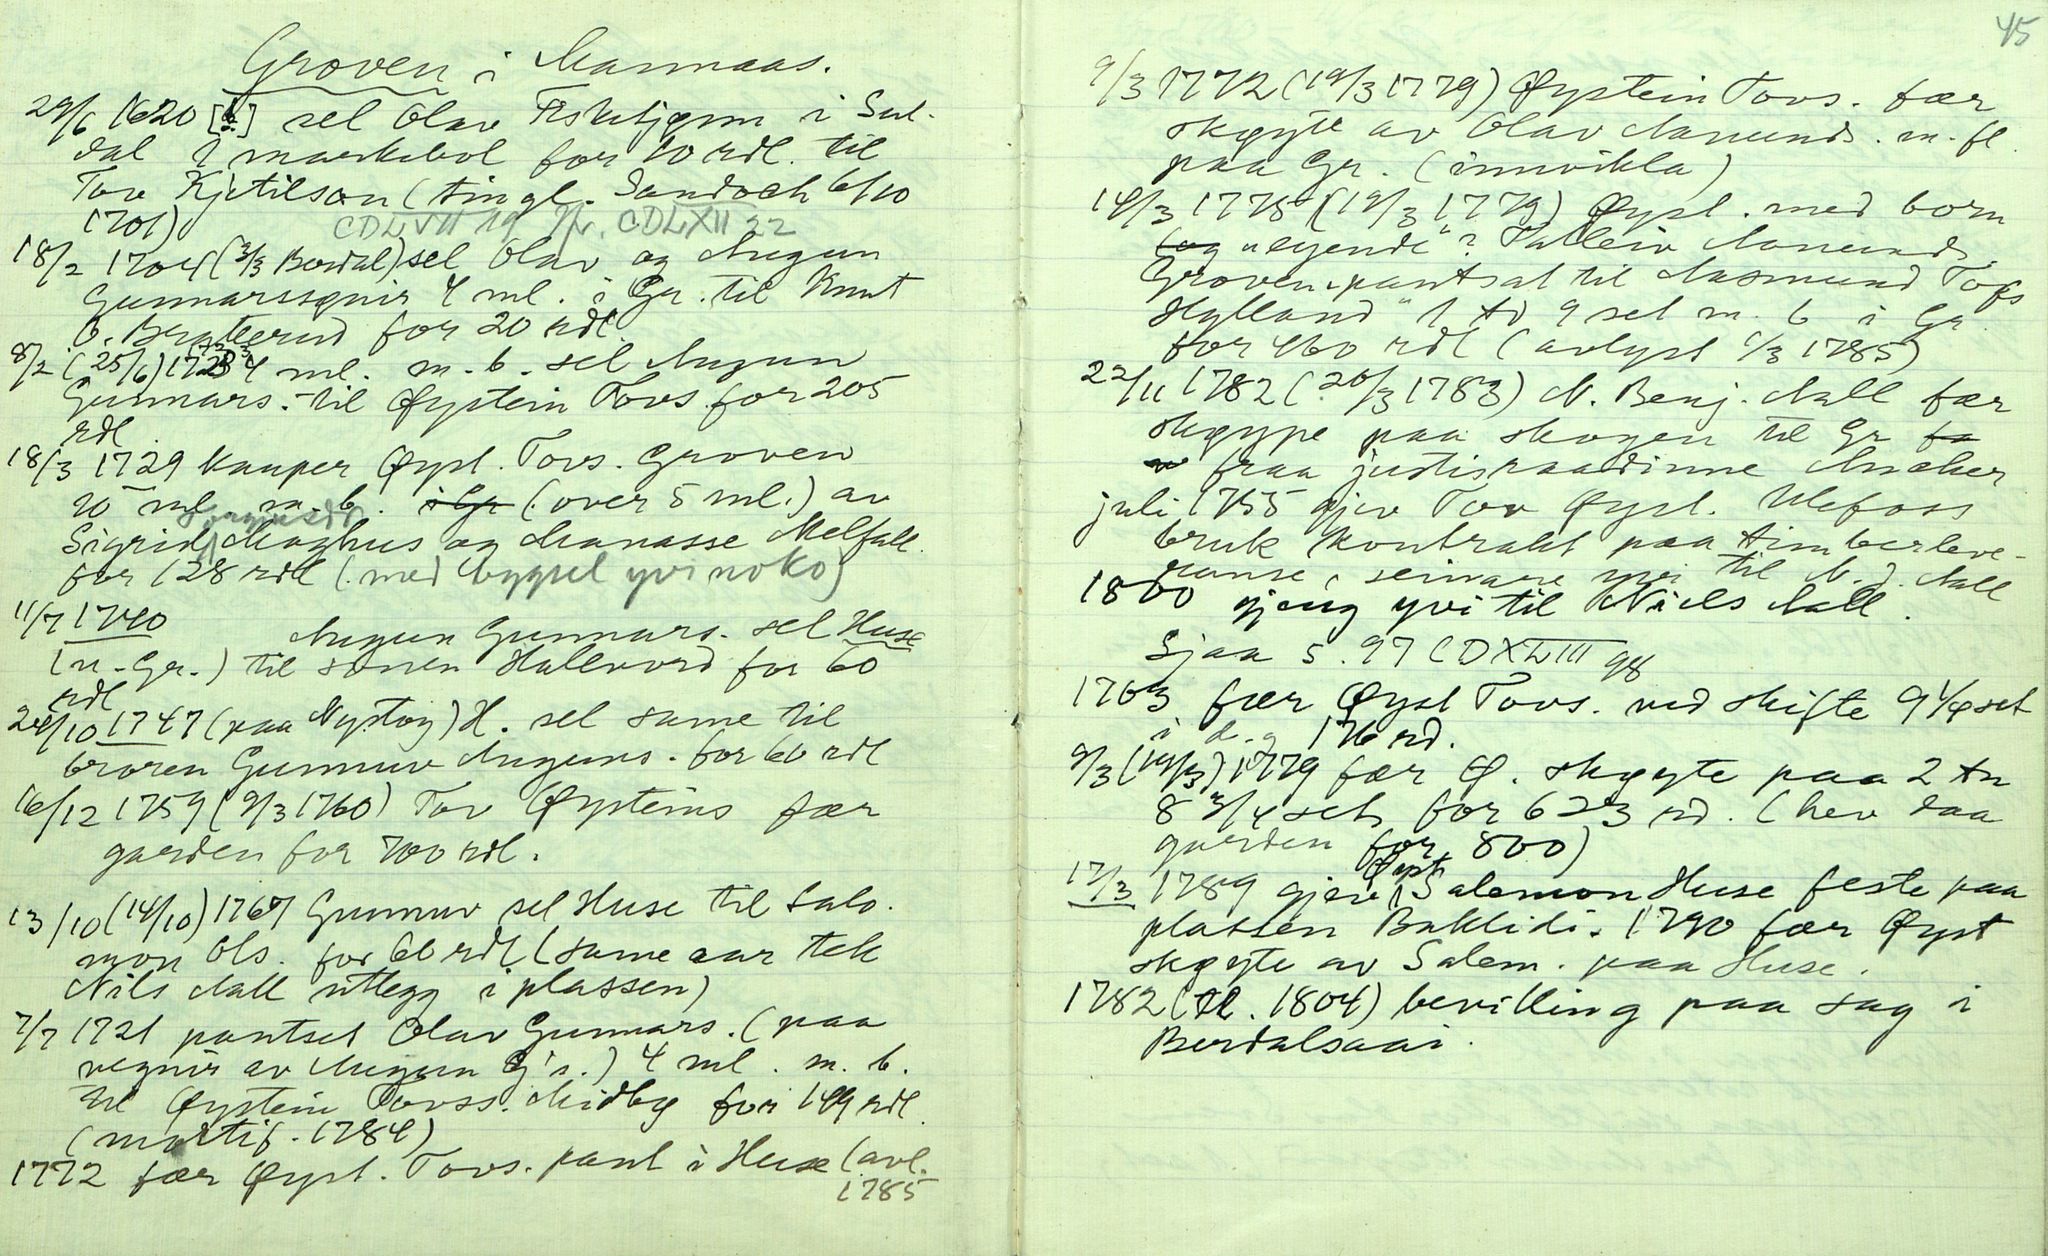 Groven i Mannaas.
29/6 1620 [!] sel Olav Fisketjønn i Sul-
dal 2 markebol for 10 rdl. til
Tov Kjetilson (tingl. Sandoch 6/10
1701)
CDLVII 19 CDLXII 22
18/2 1704 (3/3 Bordal) sel Olav og Augun
Gunnarssønir 4 ml. i Gr. til Knut
O. Bratterud for 20 rdl.
8/2 (25/6) 1723 4 ml. m. b. sel Augun
Gunnars. til Øystein Tovs for 205
rdl
18/3 1729 kauper Øyst. Tovs. Groven
10 ml m. b. i Gr (over 5 ml.) av
Sigrid Moghus og Manasse Melfall
for 128 rdl (med bygsel yvi noko)
11/7 1740
Augun Gunnars. sel Huse
(u. Gr.) til sonen Hallvord for 60
rdl
24/10 1747 (paa Nystog) H. sel same til
broren Gunnuv Auguns. for 60 rdl
16/12 1759 (9/3 1760) Tov Øysteins fær
garden for 700 rdl.
13/10 (14/10) 1767 Gunnuv sel Huse til Salo-
mon Ols. for 60 rdl (same aar tek
Nils Aall utlegg i plassen)
7/7 1721 pantset Olav Gunnars. (paa
vegnir av Augun G's.) 4 ml. m. b.
til Øystein Tovss. Midbø for 149 rdl
(mortif. 1784)
1772 fær Øyst. Tovs. pant i Huse (avl.
1785
45
9/3 1772 (19/3 1779) Øystein Tovs. fær
skøyte av Olav Aamunds. m. fl.
paa Gr. (innvikla)
14/3 1775 (19/3 1779) Øyst. med born
log "egende": Talleiv Aamunds.
Groven pantsat til Aasmund Tofs
Hylland" 1 td 9 set m. b i Gr
for 460 rdl (avlyst 6/3 1785)
22/11 1782 (20/3 1783) N. Benj. Aall fær
skøype paa skogen til Gr fa
fraa justisraadinne Ancker
juli 1755 gjev Tov Øyst. Ulefoss
bruk kontrakt paa timberleve-
ranse, seinare yvi til N. J. Aall
1800 gjeng yvi til Niels Aall.
Sjaa s. 97 CDXLIII 98
1763 fær Øyst Tovs. ved skifte 9 1/4 set
i d. g 176 rd.
9/3 (19/3) 1779 fær Ø. skøyte paa 2 tn
8 3/4 set. for 623 rd. (hev daa
garden for 800)
17/3 1789 gjev Øyst Salomon Huse feste paa
plassen Baklidi. 1790 fær Øyst
skøyte av Salom. paa Huse.
1782 (tl. 1804) bevilling paa sag i
Bordalsaai.